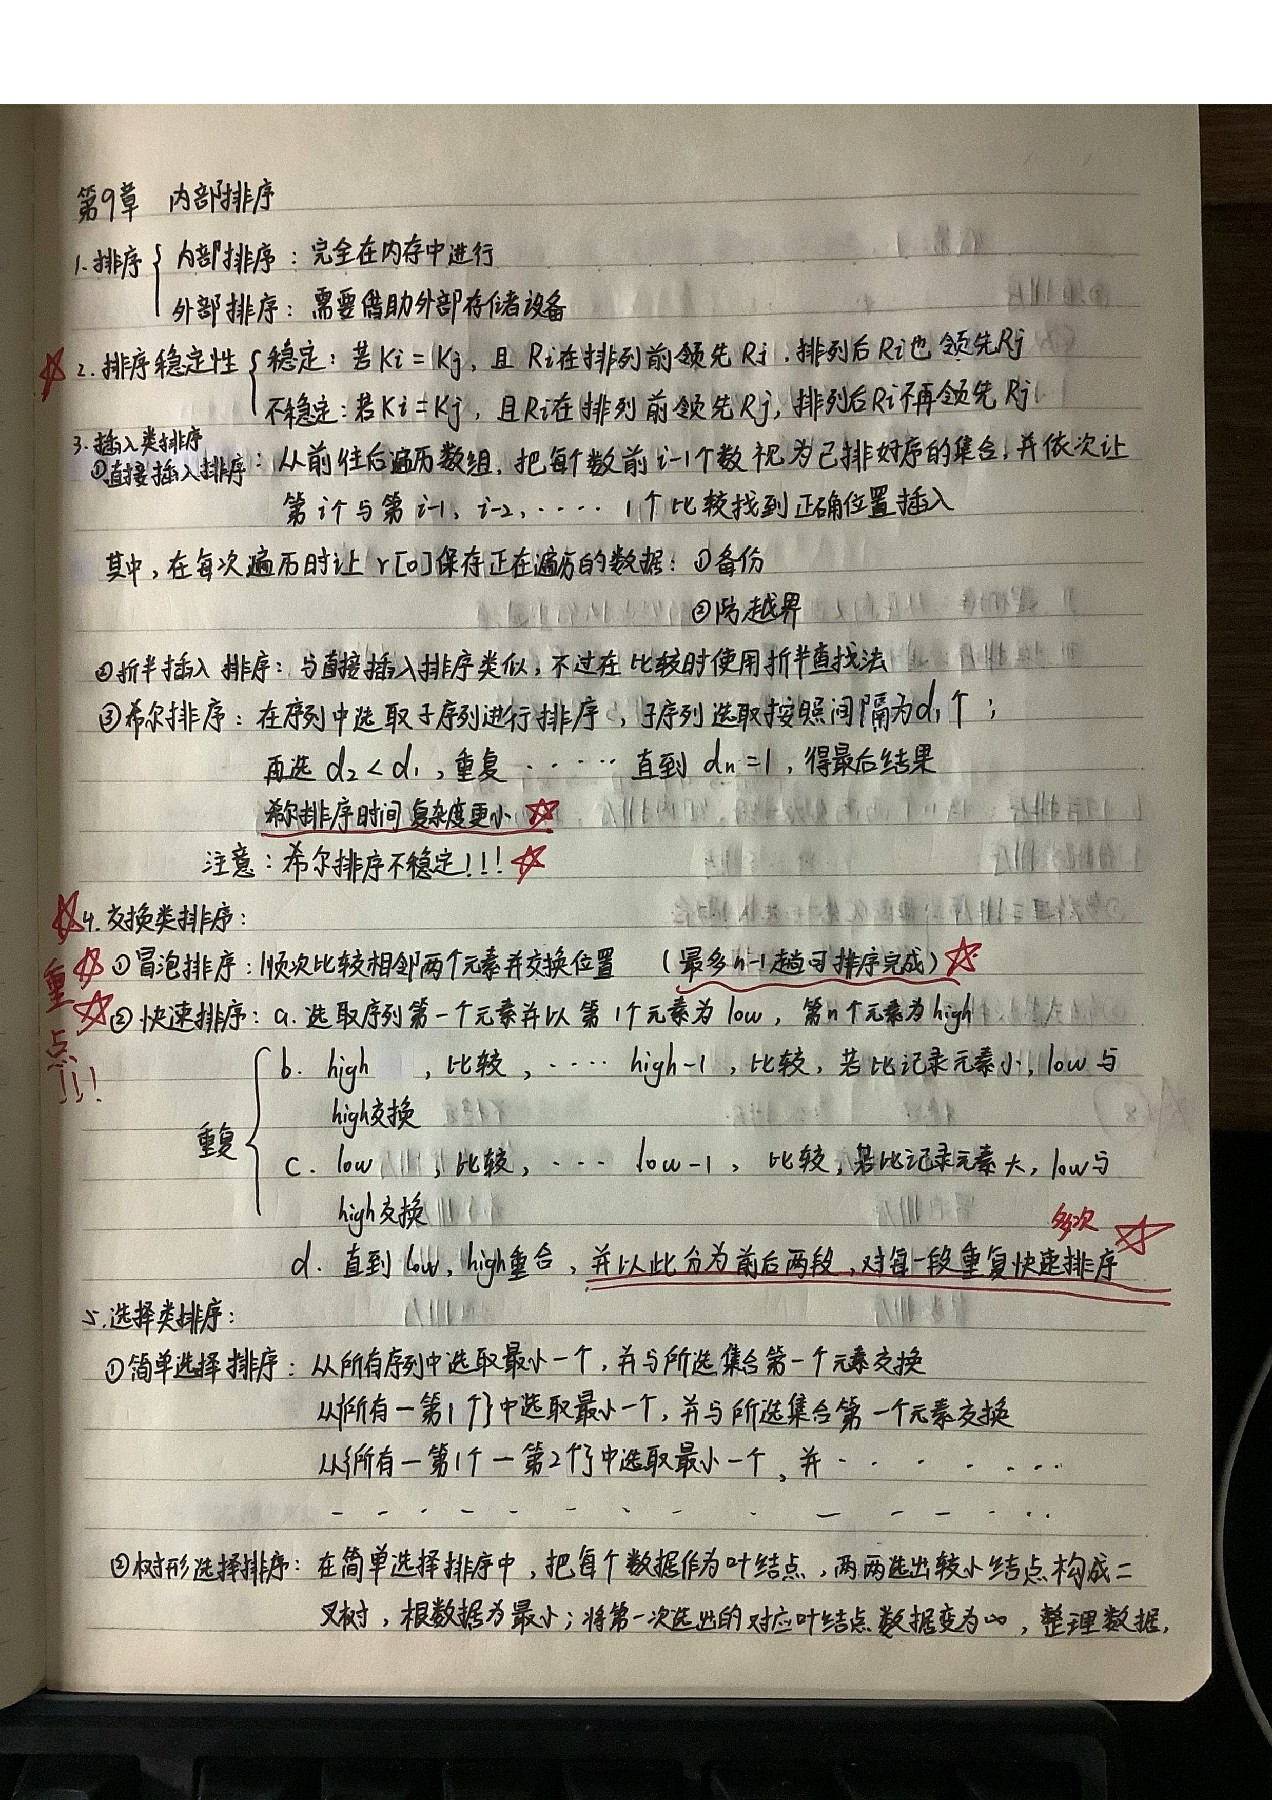 第9章 内部排序
1.排序 { 内部排序：完全在内存中进行
外部排序：需要借助外部存储设备
☆ 2.排序稳定性 { 稳定：若Ki=Kj，且Ri在排列前领先Rj，排列后Ri也领先Rj
不稳定：若Ki=Kj，且Ri在排列前领先Rj，排列后Ri不再领先Rj
3.插入类排序
①直接插入排序：从前往后遍历数组，把每个数前i-1个数视为已排好序的集合，并依次让
第i个与第i-1、i-2，····· 1个比较找到正确位置插入
其中，在每次遍历时让r[0]保存正在遍历的数据：①备份
②防越界
②折半插入排序：与直接插入排序类似，不过在比较时使用折半查找法
③希尔排序：在序列中选取子序列进行排序，子序列选取按照间隔为d₁个；
再选d₂<d₁，重复······直到dn=1，得最后结果
希尔排序时间复杂度更小☆
注意：希尔排序不稳定!!!☆
☆4.交换类排序：
重点!!! ☆①冒泡排序：顺次比较相邻两个元素并交换位置 （最多n-1趟可排序完成）☆
☆②快速排序：a.选取序列第一个元素并以第1个元素为low，第n个元素为high
重复 { b. high ，比较，···· high-1，比较，若比记录元素小，low与
high交换
c. low ，比较，···· low-1，比较，若比记录元素大，low与
high交换
多次 ☆
d. 直到low，high重合，并以此分为前后两段，对每一段重复快速排序
5.选择类排序：
①简单选择排序：从所有序列中选取最小一个，并与所选集合第一个元素交换
从{所有一第1个}中选取最小一个，并与所选集合第一个元素交换
从{所有一第1个一第2个}中选取最小一个，并······
②树形选择排序：在简单选择排序中，把每个数据作为叶结点，两两选出较小结点构成二
叉树，根数据为最小；将第一次选出的对应叶结点数据变为∞，整理数据，